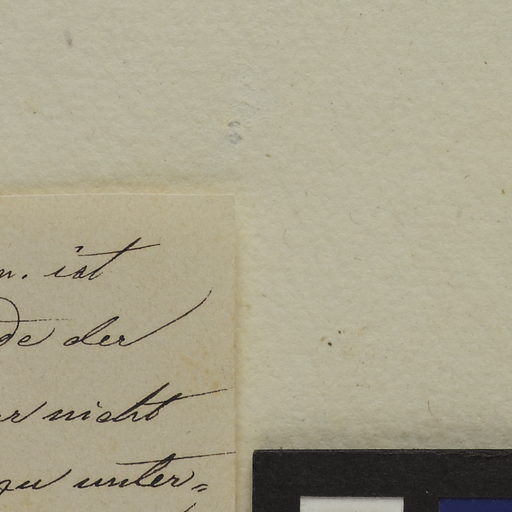 n. ist
de der
er nicht
zu unter=